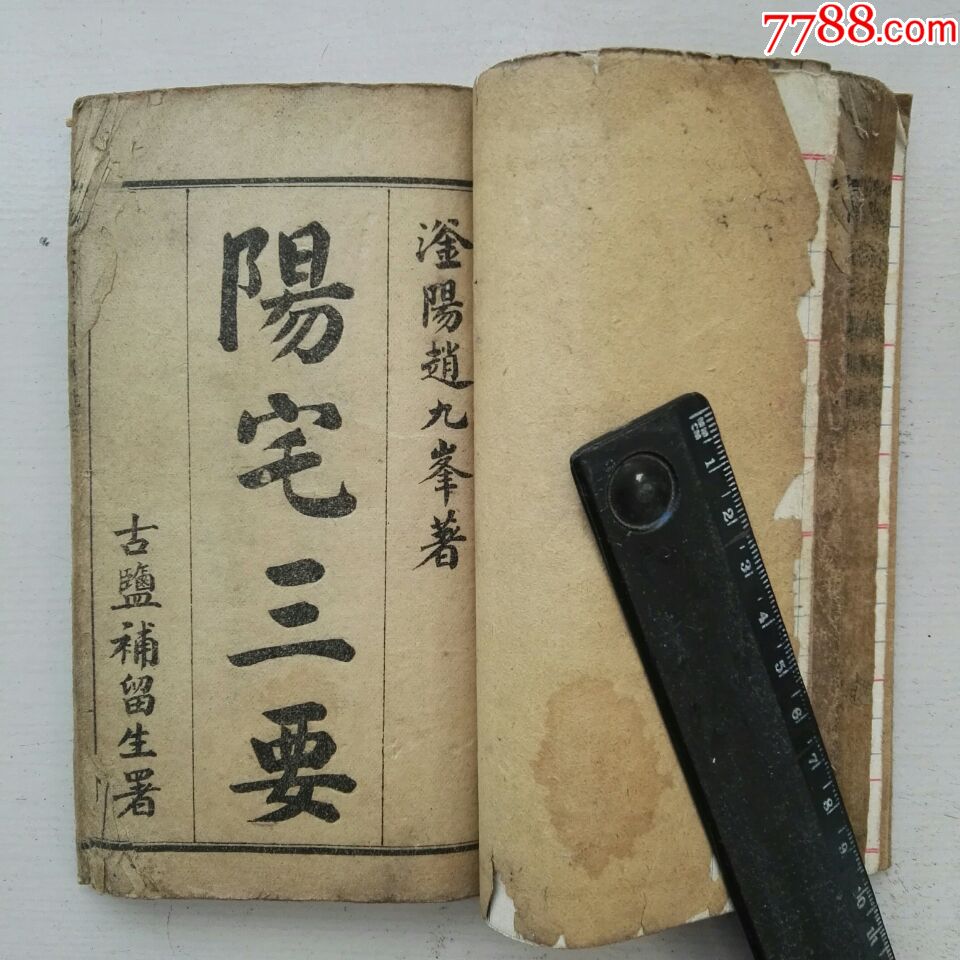 7788.com
滏陽趙九峯著
陽宅三要
古鹽補留生署
1 2 3 4 5 6 7 8 9 10 11